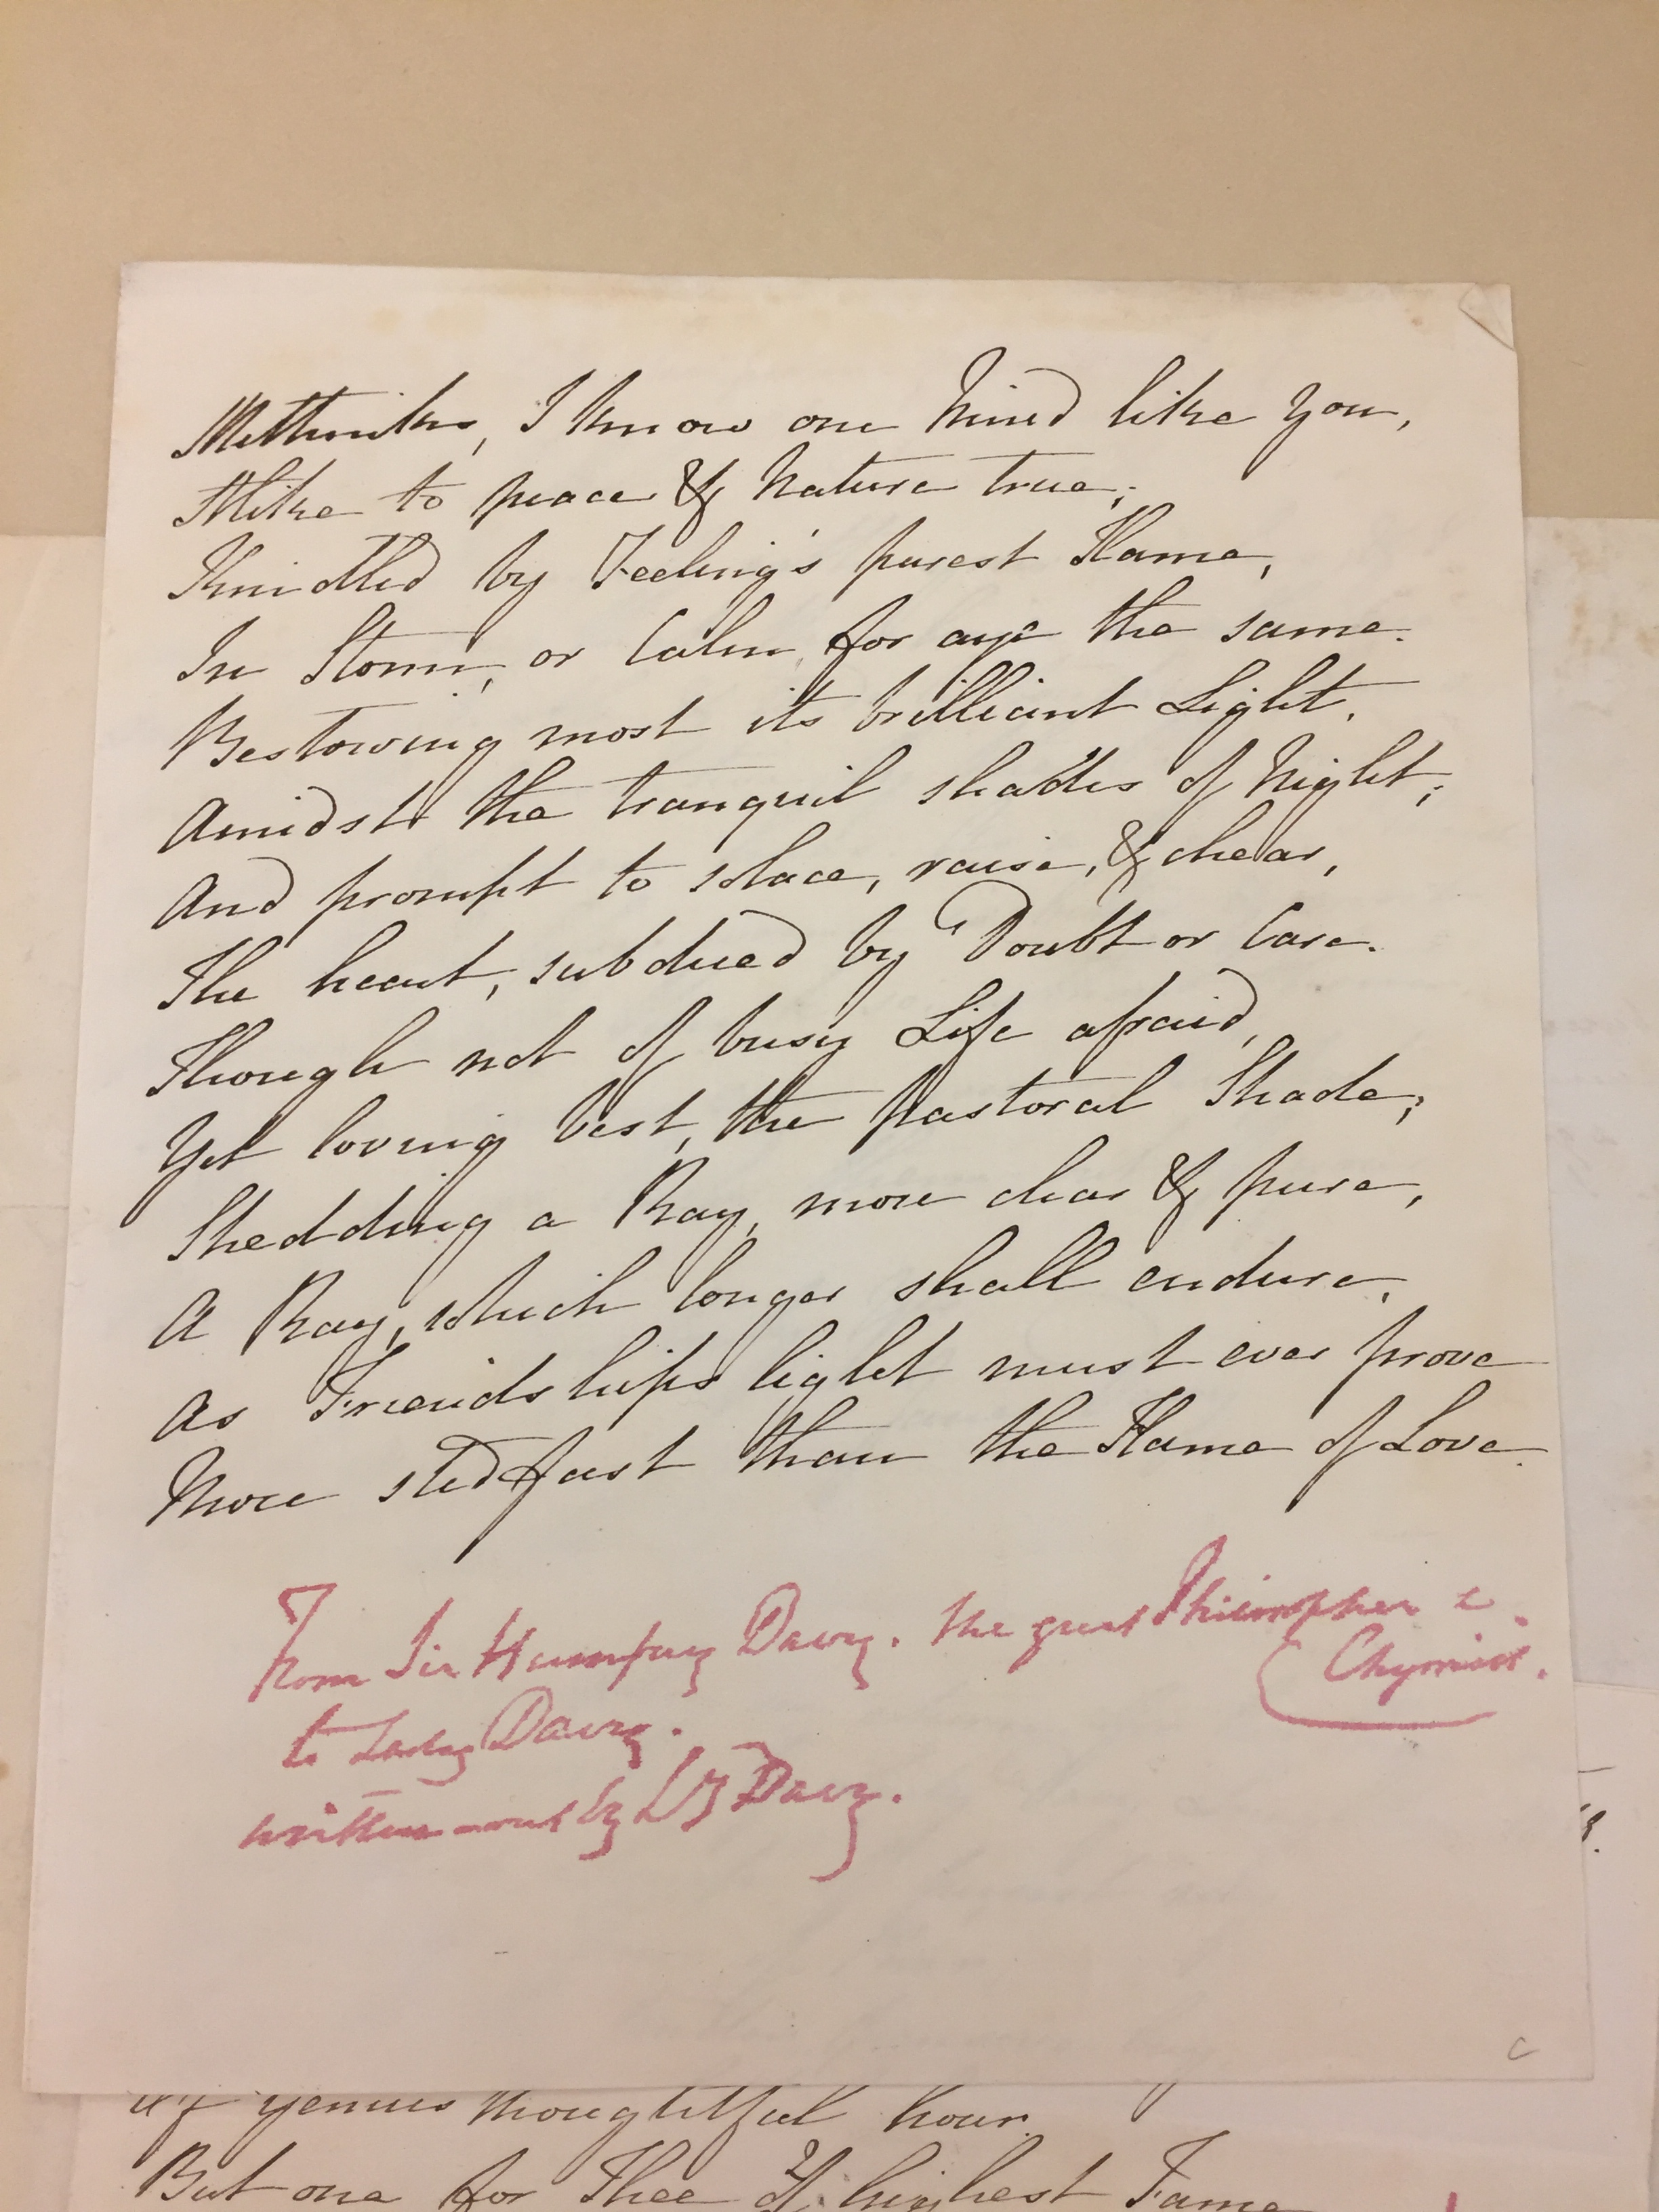 Methinks, I know one Mind like you,
Alike to peace & Nature true;
Kindled by Feeling's purest Flame,
In Storm, or Calm, for aye the same.
Bestowing most its brilliant Light,
Amidst the tranquil shades of Night;
And prompt to solace, raise, & chear,
The heart, subdued by Doubt or Care.
Though not of busy Life afraid,
Yet loving best, the pastoral Shade;
Shedding a Ray, more clear & pure,
A Ray, which longer shall endure,
As Friendships light must ever prove
More stedfast than the Flame of Love.
From Sir Humfray Davy. the great Philosopher &
Chymist.
to Lady Davy.
written out by Ly Davy.
C
of genius thoughtful hour.
But one for Thee of highest Fame